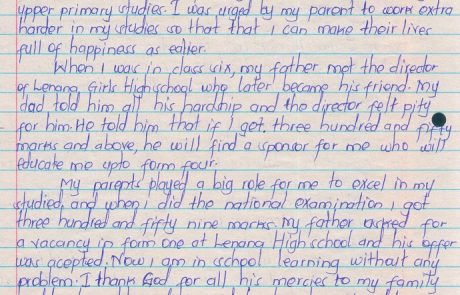 upper primary studies. I was urged by my parent to work extra
harder in my studies so that that I can make their lives
full of happiness as earlier.
When I was in class six, my father met the director
of Lenana Girls Highschool who later became his friend. My
dad told him all his hardship and the director felt pity
for him. He told him that if I get, three hundred and fifty
marks and above, he will find a sponsor for me who will
educate me upto form four.
My parents played a big role for me to excel in my
studied, and when I did the national examination I got
three hundred and fifty nine marks. My father asked for
a vacancy in form one at Lenana High school and his offer
was acepted. Now I am in school learning without any
problem. I thank God for all his mercies to my family